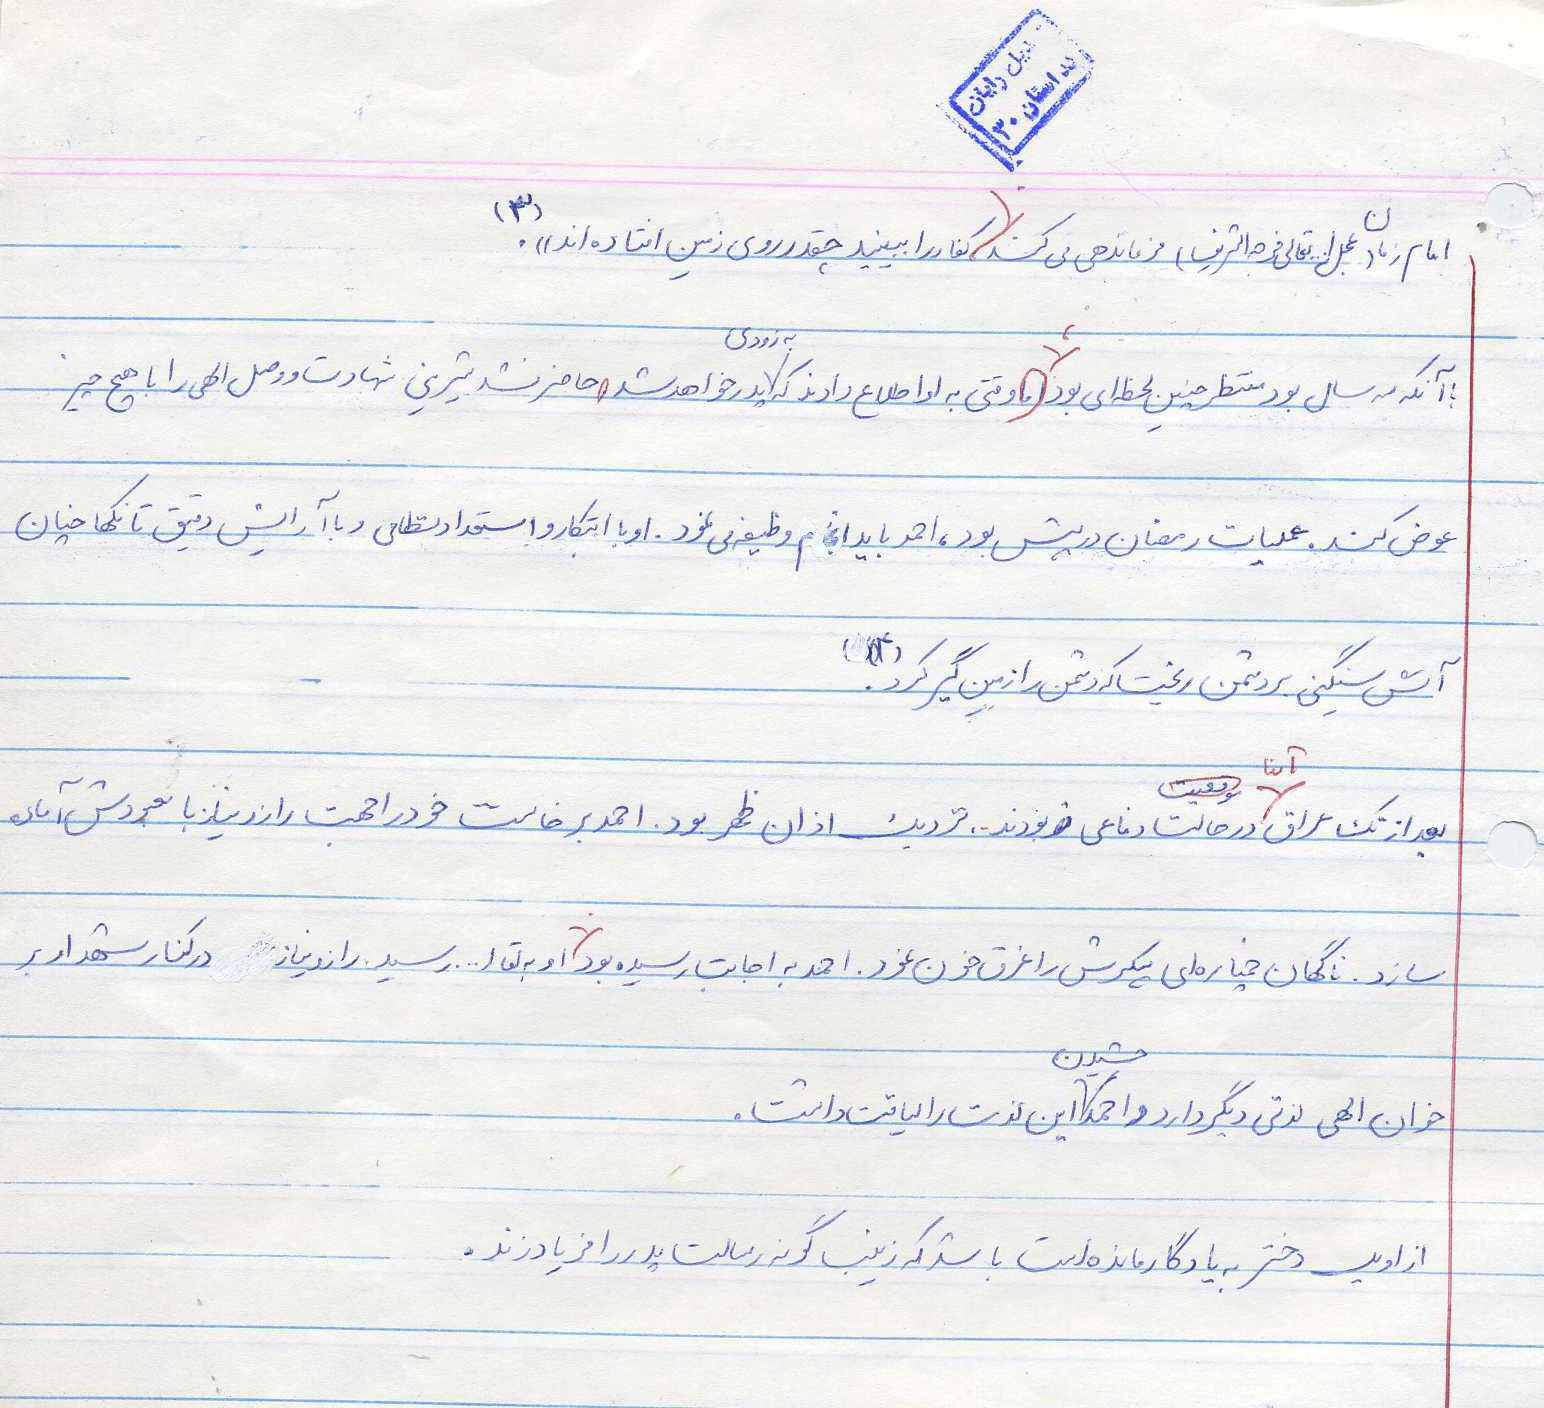 دیل رایان
ید استان ۳۰
امام زمان (عجل ا... تعالی فرجه الشریف) فرماندهی می کنند. کفار را ببینید چقدر روی زمین افتاده اند». (۳)
به زودی
با آنکه سه سال بود منتظر چنین لحظه ای بود، اما وقتی به او اطلاع دادند که پدر خواهد شد، حاضر نشد شیرینی شهادت و وصل الهی را با هیچ چیز
عوض کند. عملیات رمضان در پیش بود، احمد باید انجام وظیفه می نمود. او با ابتکار و استعداد نظامی و با آرایش دقیق تانکها چنان
آتش سنگینی بر دشمن ریخت که دشمن را زمین گیر کرد. (۴)
آنها
موقعیت
بعد از تک عراق در حالت دفاعی بودند. نزدیک اذان ظهر بود. احمد برخاست خود را جهت راز و نیاز با معبودش آماده
سازد. ناگهان خمپاره ای پیکرش را غرق خون نمود. احمد به اجابت رسیده بود. او به لقا ا... رسید. راز و نیاز در کنار شهدا و بر
چشیدن
خوان الهی لذتی دیگر دارد و احمد این لذت را لیاقت داشت.
از او یک دختر به یادگار مانده است باشد که زینب گونه رسالت پدر را فریاد زند.